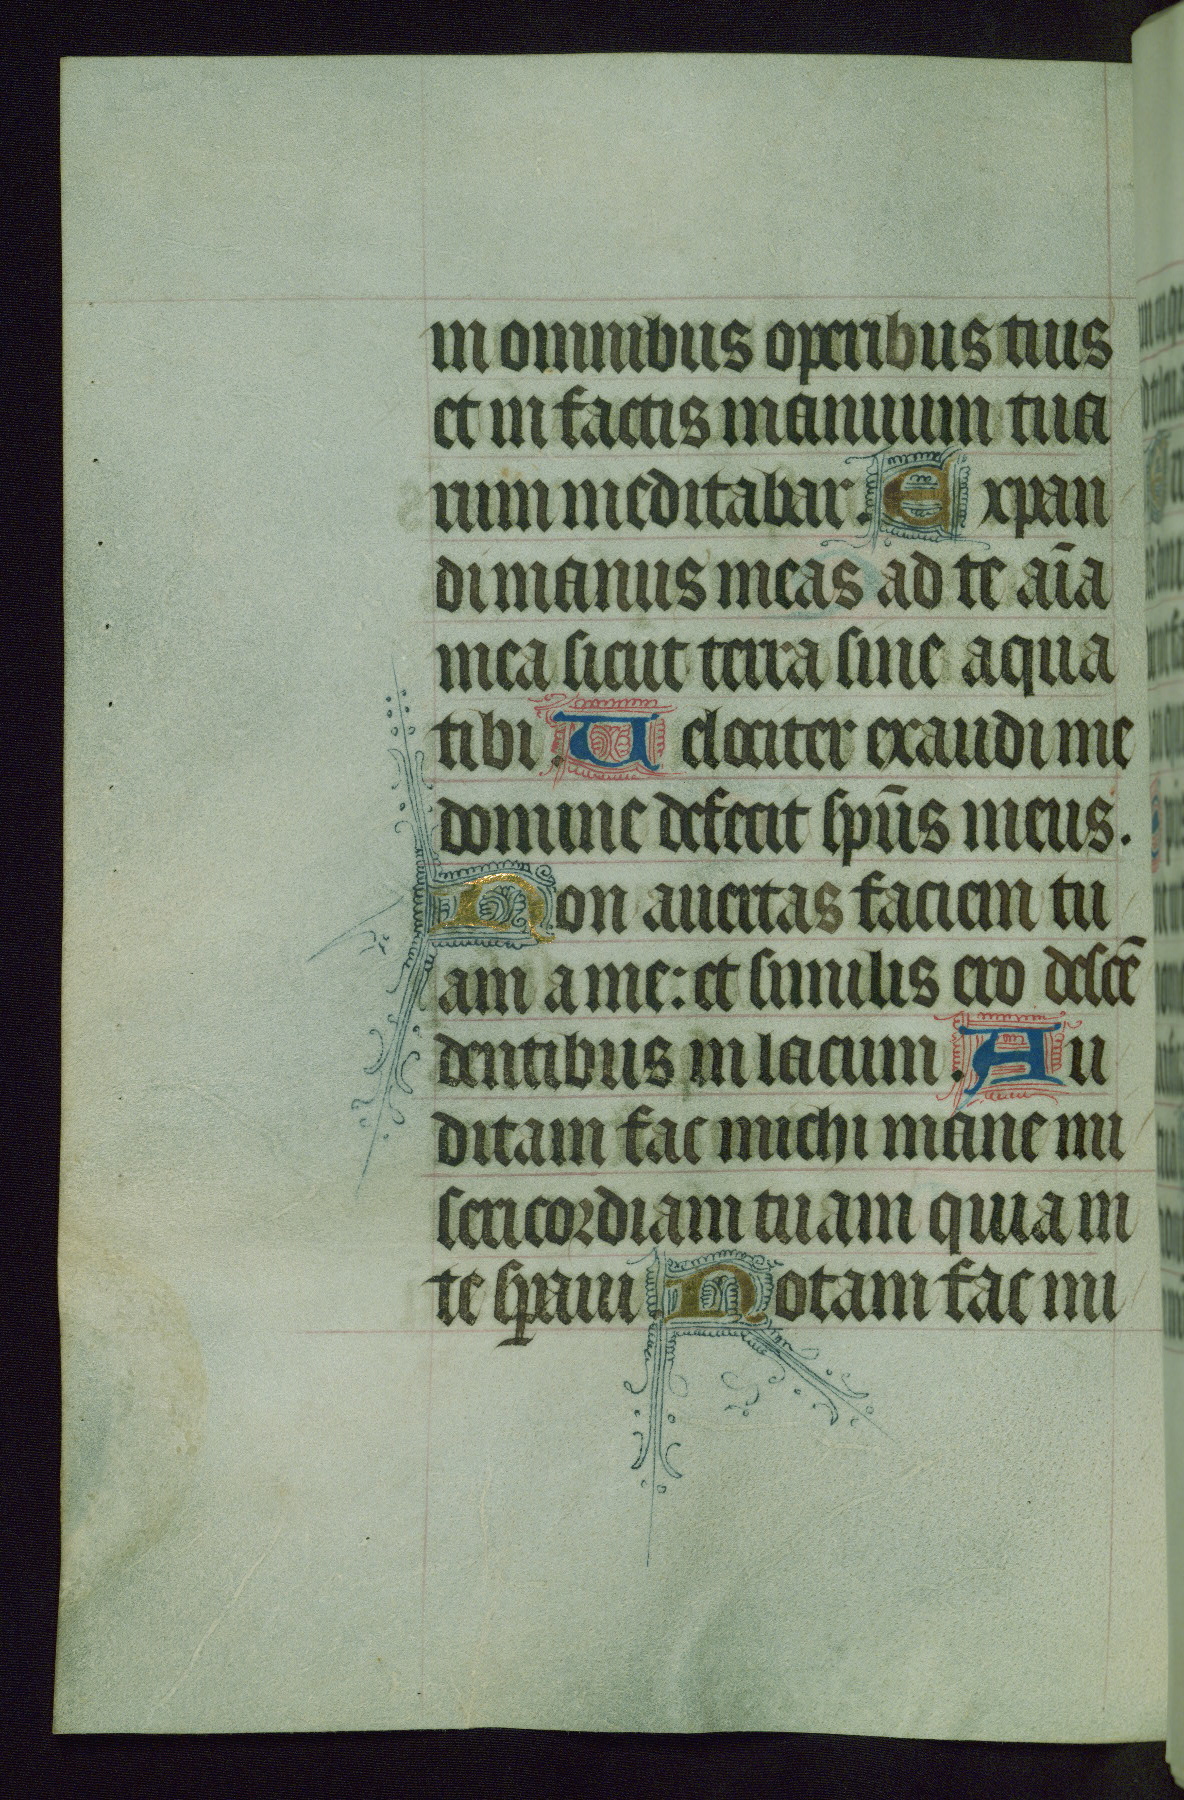 in omnibus operibus tuis
et in factis manuum tua
rum meditabar. Expan
di manus meas ad te aīa
mea sicut terra sine aqua
tibi. Uelociter exaudi me
domine defecit sp̄us meus.
Non auertas faciem tu
am a me: et similis ero descē
dentibus in lacum. Au
ditam fac michi mane mi
sericordiam tuam quia in
te sꝑaui Notam fac mi